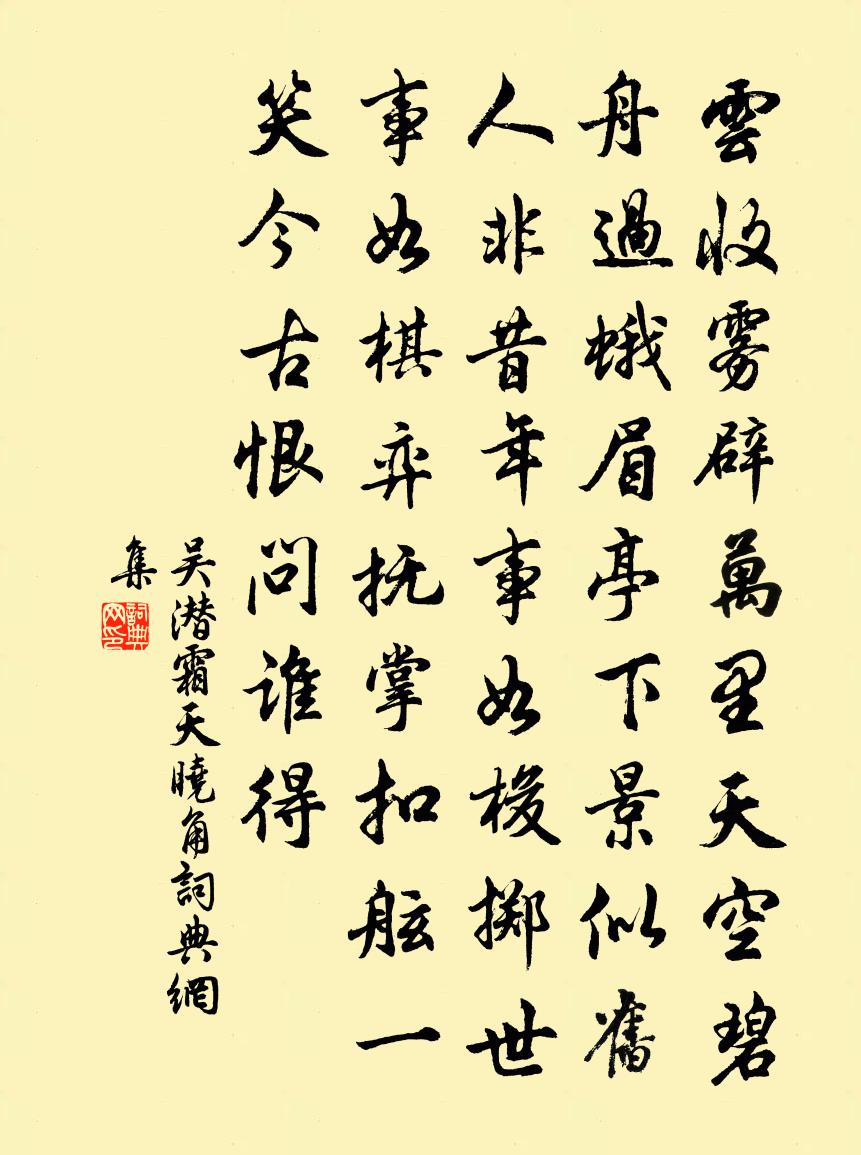 雲收雾辟萬里天空碧
舟過蛾眉亭下景似舊
人非昔年事如梭掷世
事如棋弈抚掌扣舷一
笑今古恨問誰得
吴潜霜天曉角詞典網
集
詞典
网印